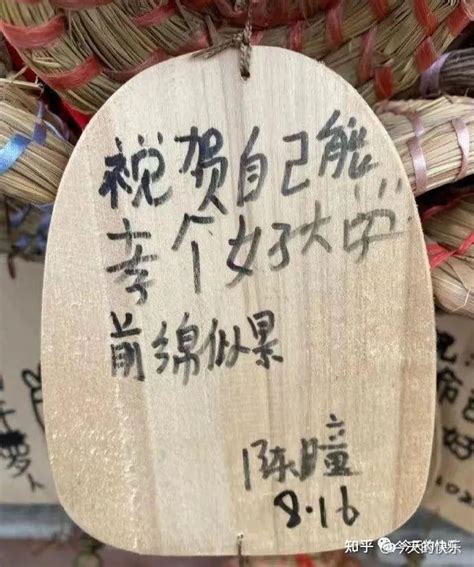 祝贺自己能
孝个好大学
前绵似果
陈瞳
8·16
知乎 @今天的快乐